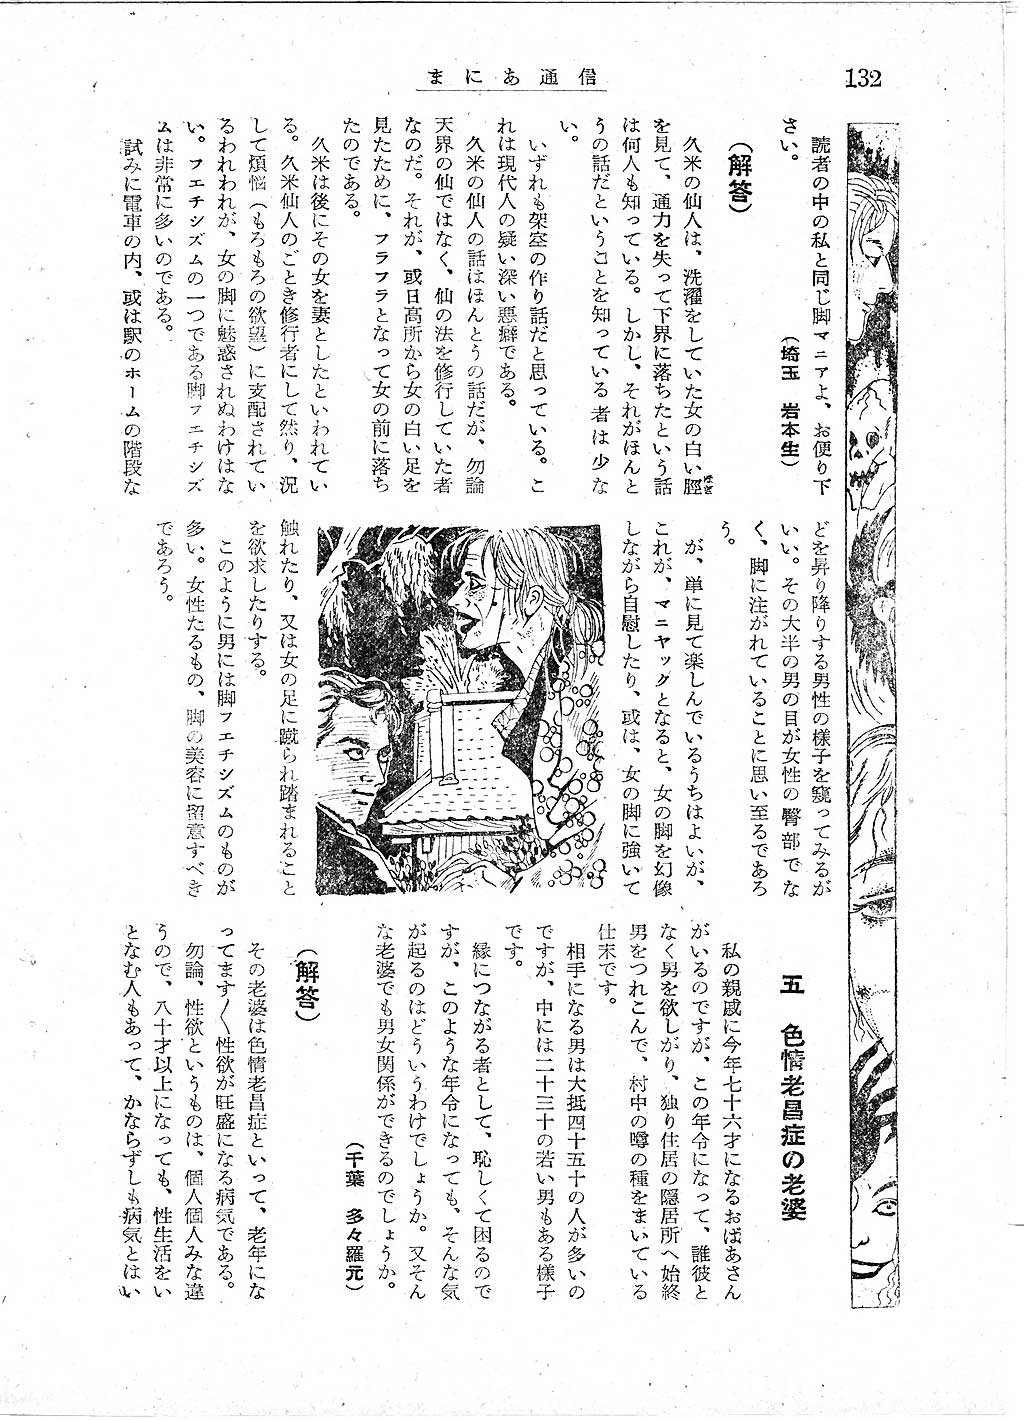 132
まにあ通信
読者の中の私と同じ脚マニアよ、お便り下
さい。
(埼玉 岩本生)
(解答)
久米の仙人は、洗濯をしていた女の白い脛
はぎ
を見て、通力を失って下界に落ちたという話
は何人も知っている。しかし、それがほんと
うの話だということを知っている者は少な
い。
いずれも架空の作り話だと思っている。こ
れは現代人の疑い深い悪癖である。
久米の仙人の話はほんとうの話だが、勿論
天界の仙ではなく、仙の法を修行していた者
なのだ。それが、或日高所から女の白い足を
見たために、フラフラとなって女の前に落ち
たのである。
久米は後にその女を妻としたといわれてい
る。久米仙人のごとき修行者にして然り、況
して煩悩(もろもろの欲望)に支配されてい
るわれわれが、女の脚に魅惑されぬわけはな
い。フエチシズムの一つである脚フエチシズ
ムは非常に多いのである。
試みに電車の内、或は駅のホームの階段な
どを昇り降りする男性の様子を窺ってみるが
いい。その大半の男の目が女性の臀部でな
く、脚に注がれていることに思い至るであろ
う。
が、単に見て楽しんでいるうちはよいが、
これが、マニヤックとなると、女の脚を幻像
しながら自慰したり、或は、女の脚に強いて
触れたり、又は女の足に蹴られ踏まれること
を欲求したりする。
このように男には脚フエチシズムのものが
多い。女性たるもの、脚の美容に留意すべき
であろう。
五 色情老昌症の老婆
私の親戚に今年七十六才になるおばあさん
がいるのですが、この年令になって、誰彼と
なく男を欲しがり、独り住居の隠居所へ始終
男をつれこんで、村中の噂の種をまいている
仕末です。
相手になる男は大抵四十五十の人が多いの
ですが、中には二十三十の若い男もある様子
です。
縁につながる者として、恥しくて困るので
すが、このような年令になっても、そんな気
が起るのはどういうわけでしょうか。又そん
な老婆でも男女関係ができるのでしょうか。
(千葉 多々羅元)
(解答)
その老婆は色情老昌症といって、老年にな
ってます〱性欲が旺盛になる病気である。
勿論、性欲というものは、個人個人みな違
うので、八十才以上になっても、性生活をい
となむ人もあって、かならずしも病気とはい